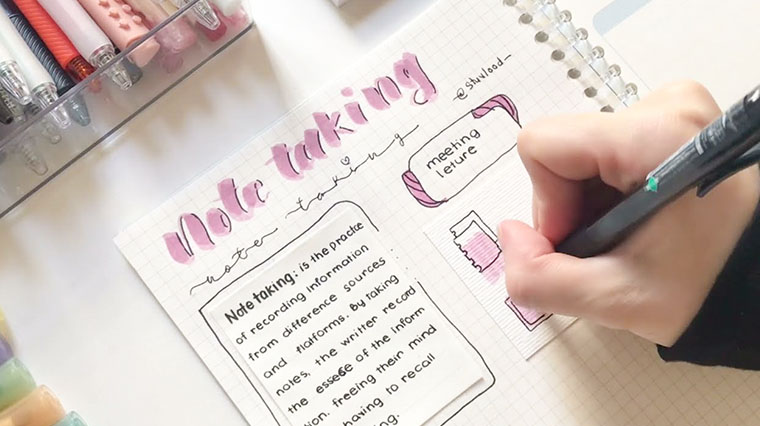 Note taking
note taking
@stuvlood_
meeting
leture
Note taking: is the practice
of recording information
from difference sources
and platforms. By taking
notes, the writter record
the essese of the inform
ion. freeing their mind
having to recall
ing.